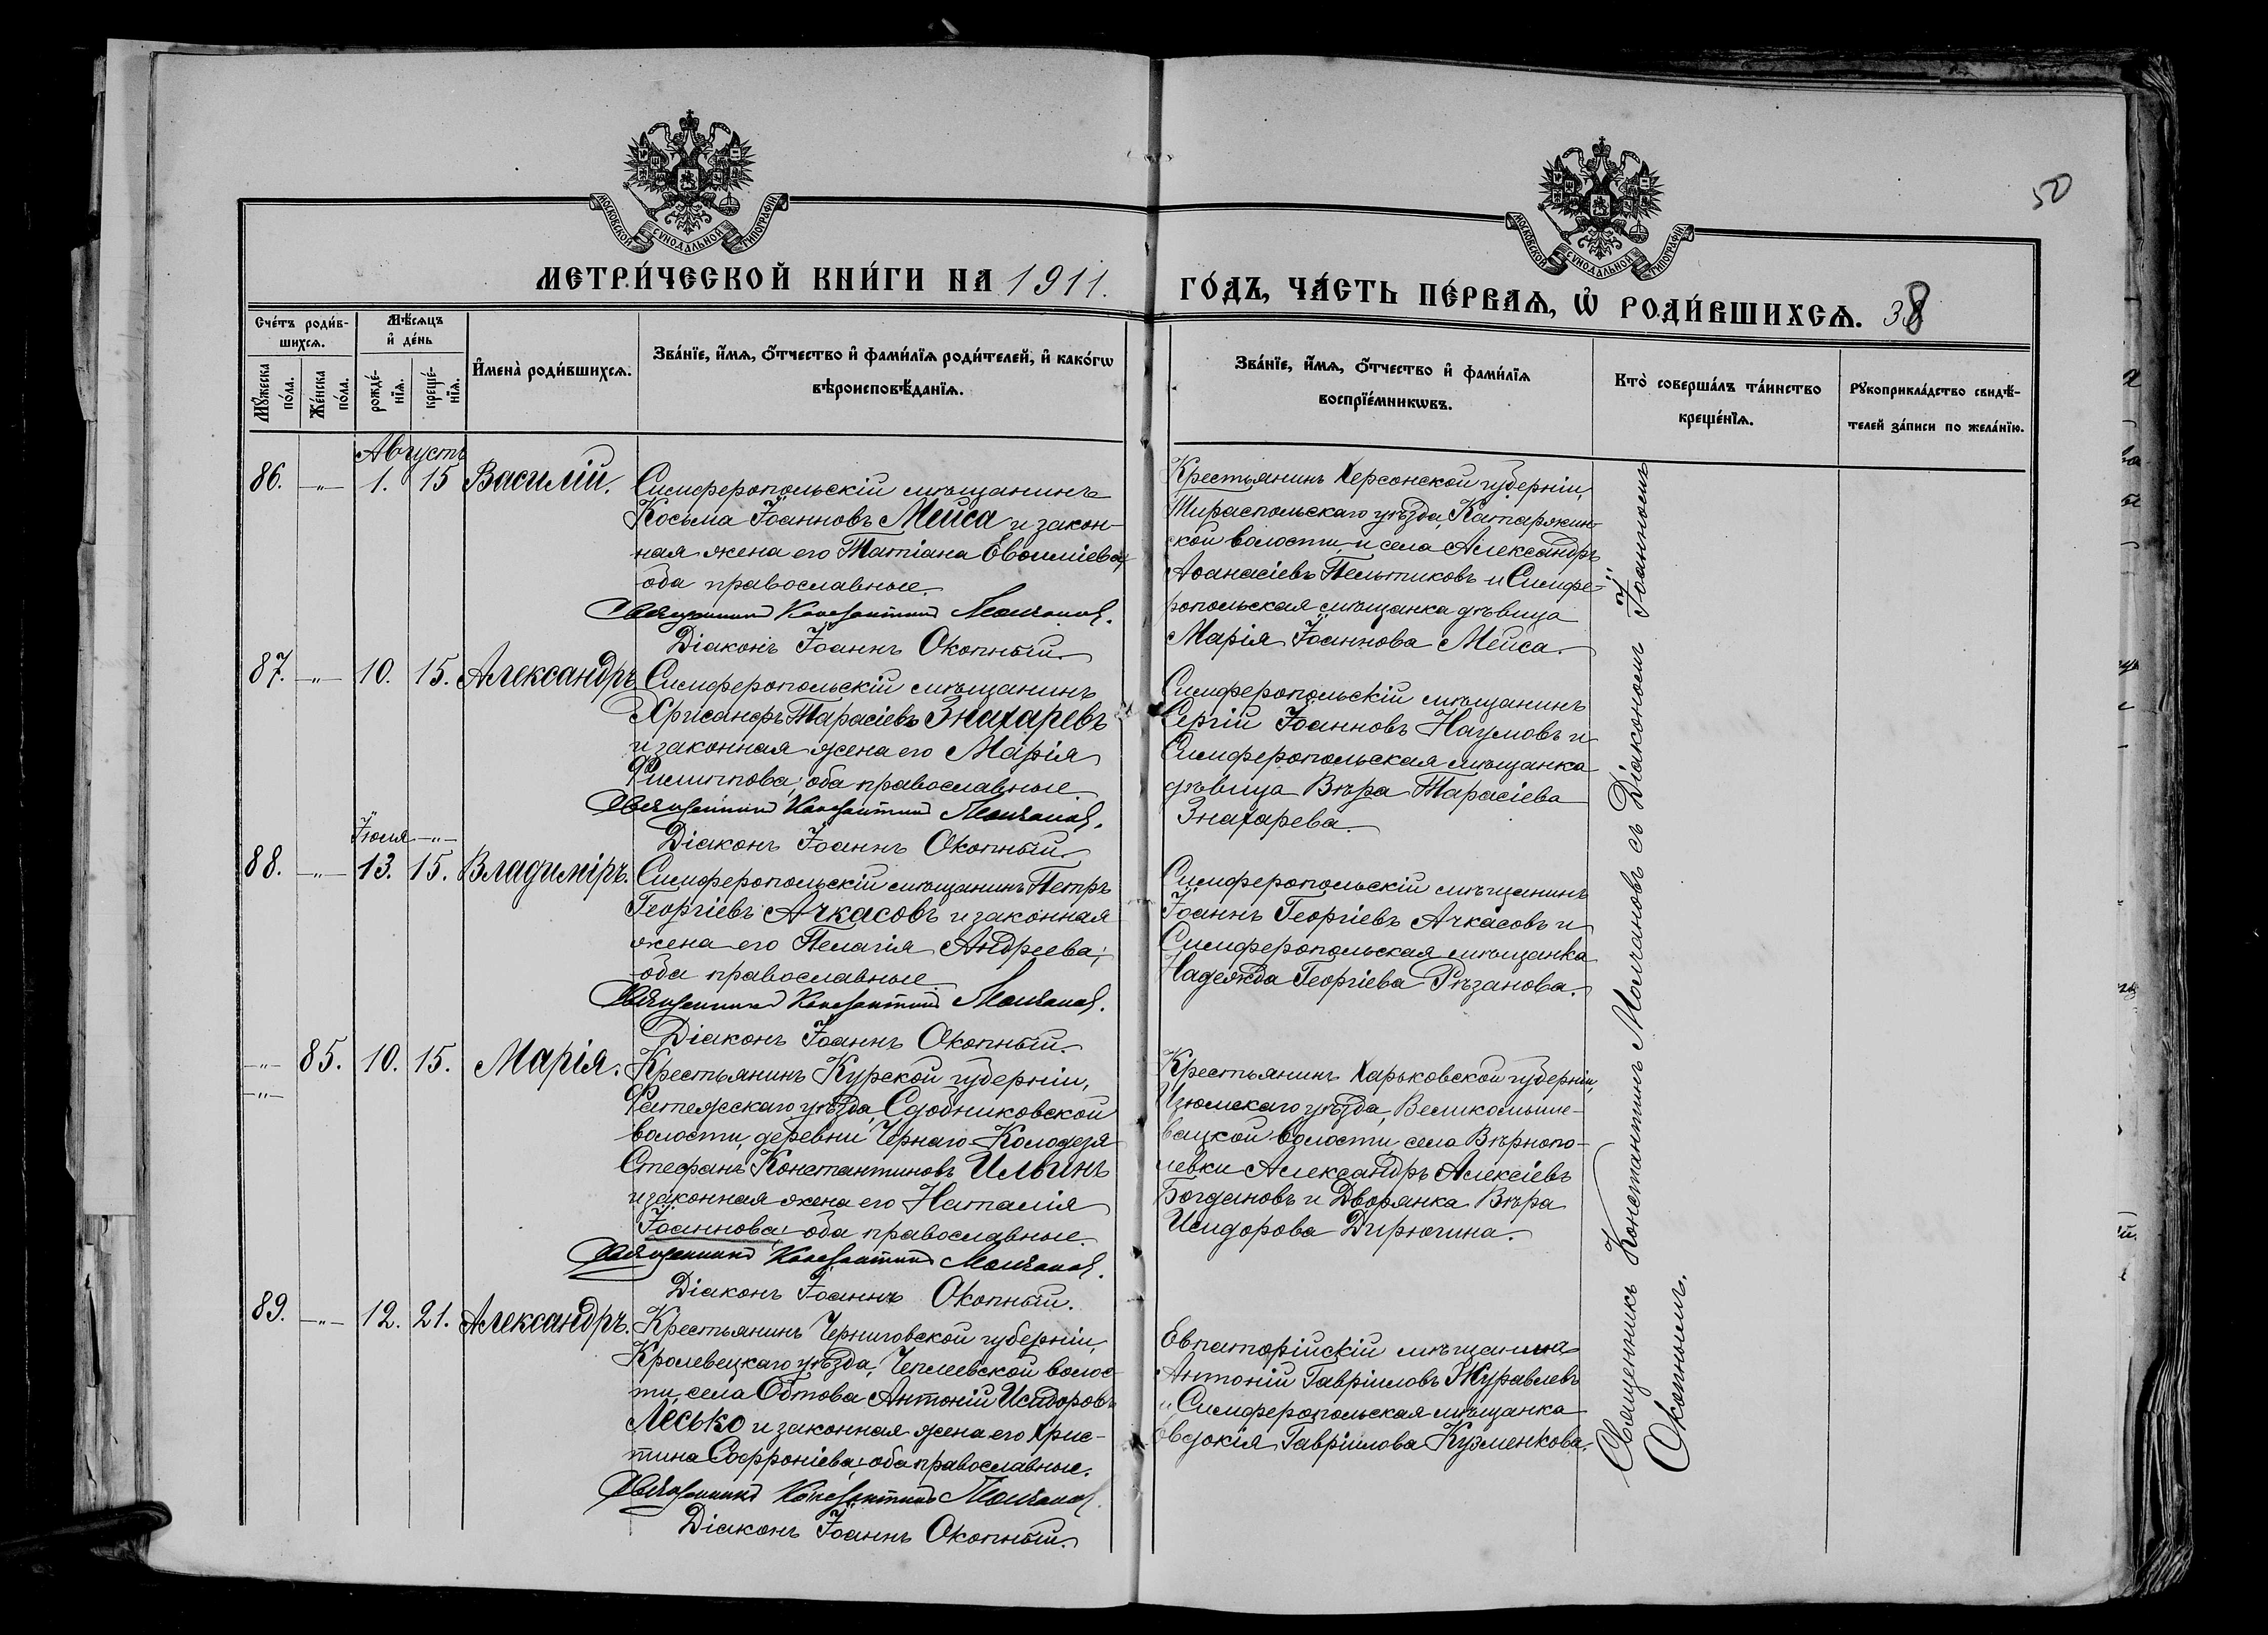 50
МОСКОВСКОЙ СУНОДАЛЬНОЙ ТИПОГРАФІИ
МОСКОВСКОЙ СУНОДАЛЬНОЙ ТИПОГРАФІИ
МЕТРИ́ЧЕСКОЙ КНИ́ГИ НА 1911.
ГО́ДЪ, ЧА́СТЬ ПЕ́РВАѦ, Ѽ РОДИ́ВШИХСѦ. 38
Сче́тъ роди́в-
шихсѧ.
Мꙋ́жеска
по́ла.
Же́нска
по́ла.
Мѣ́сѧцъ
и҆ де́нь
рожде́-
нїѧ.
креще́-
нїѧ.
И҆мена̀ роди́вшихсѧ.
Зва́нїе, и҆́мѧ, ѻ҆́тчество и҆ фами́лїѧ роди́телей, и҆ како́гѡ
вѣроисповѣ́данїѧ.
Зва́нїе, и҆́мѧ, ѻ҆́тчество и҆ фами́лїѧ
воспрїе́мникѡвъ.
Кто̀ соверша́лъ та́инство
креще́нїѧ.
Рꙋкоприкла́дство свидѣ́-
телей за́писи по жела́нїю.
Августъ
86. —"— 1. 15 Василій.
Симферопольскій мѣщанинъ
Косьма Іоанновъ Мейса и закон-
ная жена его Татіана Евѳиміева,
оба православные.
Священникъ Константинъ Молчановъ.
Діаконъ Іоаннъ Окопный.
Крестьянинъ Херсонской губерніи,
Тираспольскаго уѣзда, Катаржин-
ской волости и села Александръ
Аѳанасіевъ Пельтиковъ и Симфе-
ропольская мѣщанка дѣвица
Марія Іоаннова Мейса.
87. —"— 10. 15. Александръ
Симферопольскій мѣщанинъ
Хрисанфъ Тарасіевъ Знахаревъ
и законная жена его Марія
Филиппова, оба православные
Священникъ Константинъ Молчановъ.
Діаконъ Іоаннъ Окопный.
Симферопольскій мѣщанинъ
Сергій Іоанновъ Наумовъ и
Симферопольская мѣщанка
дѣвица Вѣра Тарасіева
Знахарева.
Іюля —"—
88. —"— 13. 15. Владиміръ.
Симферопольскій мѣщанинъ Петръ
Георгіевъ Ачкасовъ и законная
жена его Пелагія Андреева,
оба православные
Священникъ Константинъ Молчановъ.
Діаконъ Іоаннъ Окопный.
Симферопольскій мѣщанинъ
Іоаннъ Георгіевъ Ачкасовъ и
Симферопольская мѣщанка
Надежда Георгіева Рѣзанова.
—"— 85. 10. 15. Марія.
—"—
Крестьянинъ Курской губерніи,
Фатежскаго уѣзда, Сдобниковской
волости, деревни Чернаго Колодезя
Стефанъ Константиновъ Ильинъ
и законная жена его Наталія
Іоаннова, оба православные.
Священникъ Константинъ Молчановъ.
Діаконъ Іоаннъ Окопный.
Крестьянинъ Харьковской губерніи,
Изюмскаго уѣзда,
волости, села Вѣрнопо-
левки Александръ Алексіевъ
Богдановъ и Дворянка Вѣра
Исидорова Дирюгина.
89. —"— 12. 21. Александръ.
Крестьянинъ Черниговской губерніи,
Кролевецкаго уѣзда, Чеплеевской волос-
ти, села Обтова Антоній Исидоровъ
Лесько и законная жена его Хрис-
тина Софроніева, оба православные.
Священникъ Константинъ Молчановъ
Діаконъ Іоаннъ Окопный.
Евпаторійскій мѣщанинъ
Антоній Гавріиловъ Журавлевъ
и Симферопольская мѣщанка
Евдокія Гавріилова Кузменкова.
Священникъ Константинъ Молчановъ съ Діакономъ Іоанномъ
Окопнымъ.